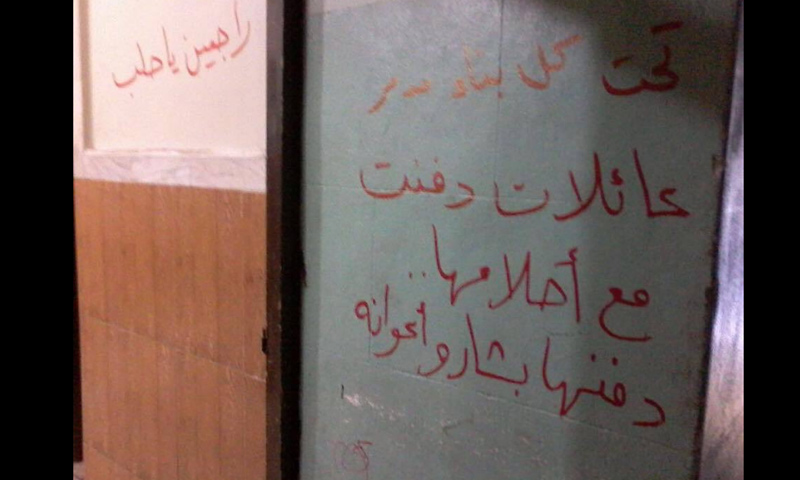 تحت كل بناء مدمر
عائلات دفنت
مع أحلامها..
دفنها بشار وأعوانه
راجعين يا حلب